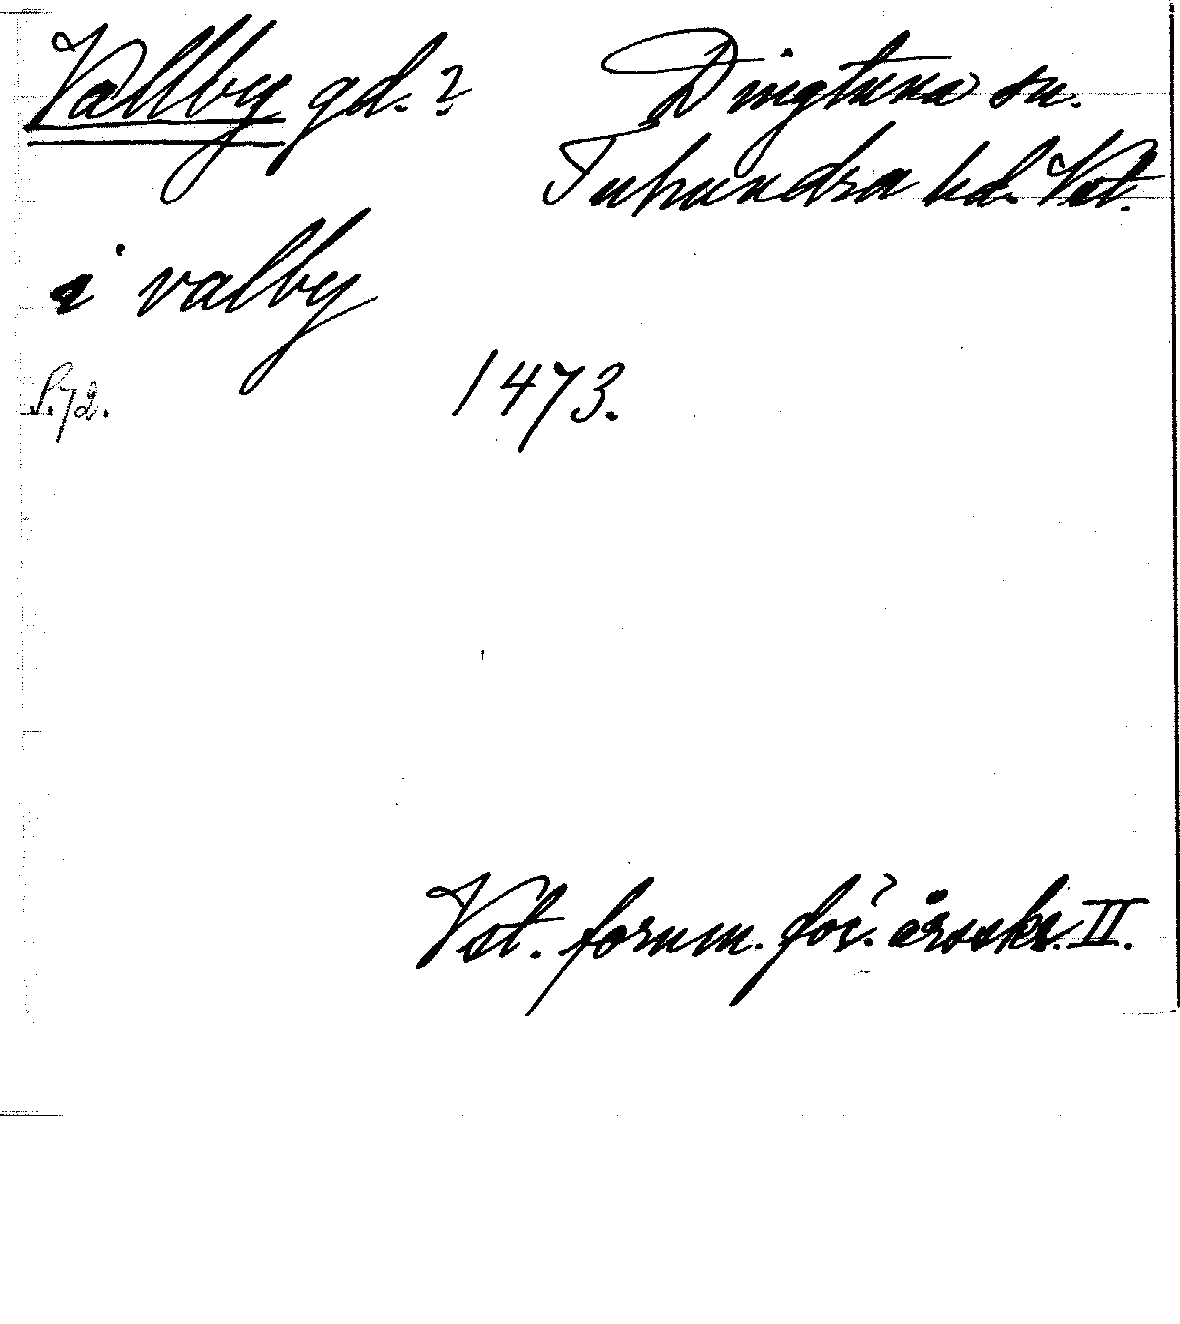 Vallby gd.? Dingtuna sn.
Tuhundra hd. Vst.
i valby
S. 72. 1473.
Vst. fornm. för:s årsskr. II.